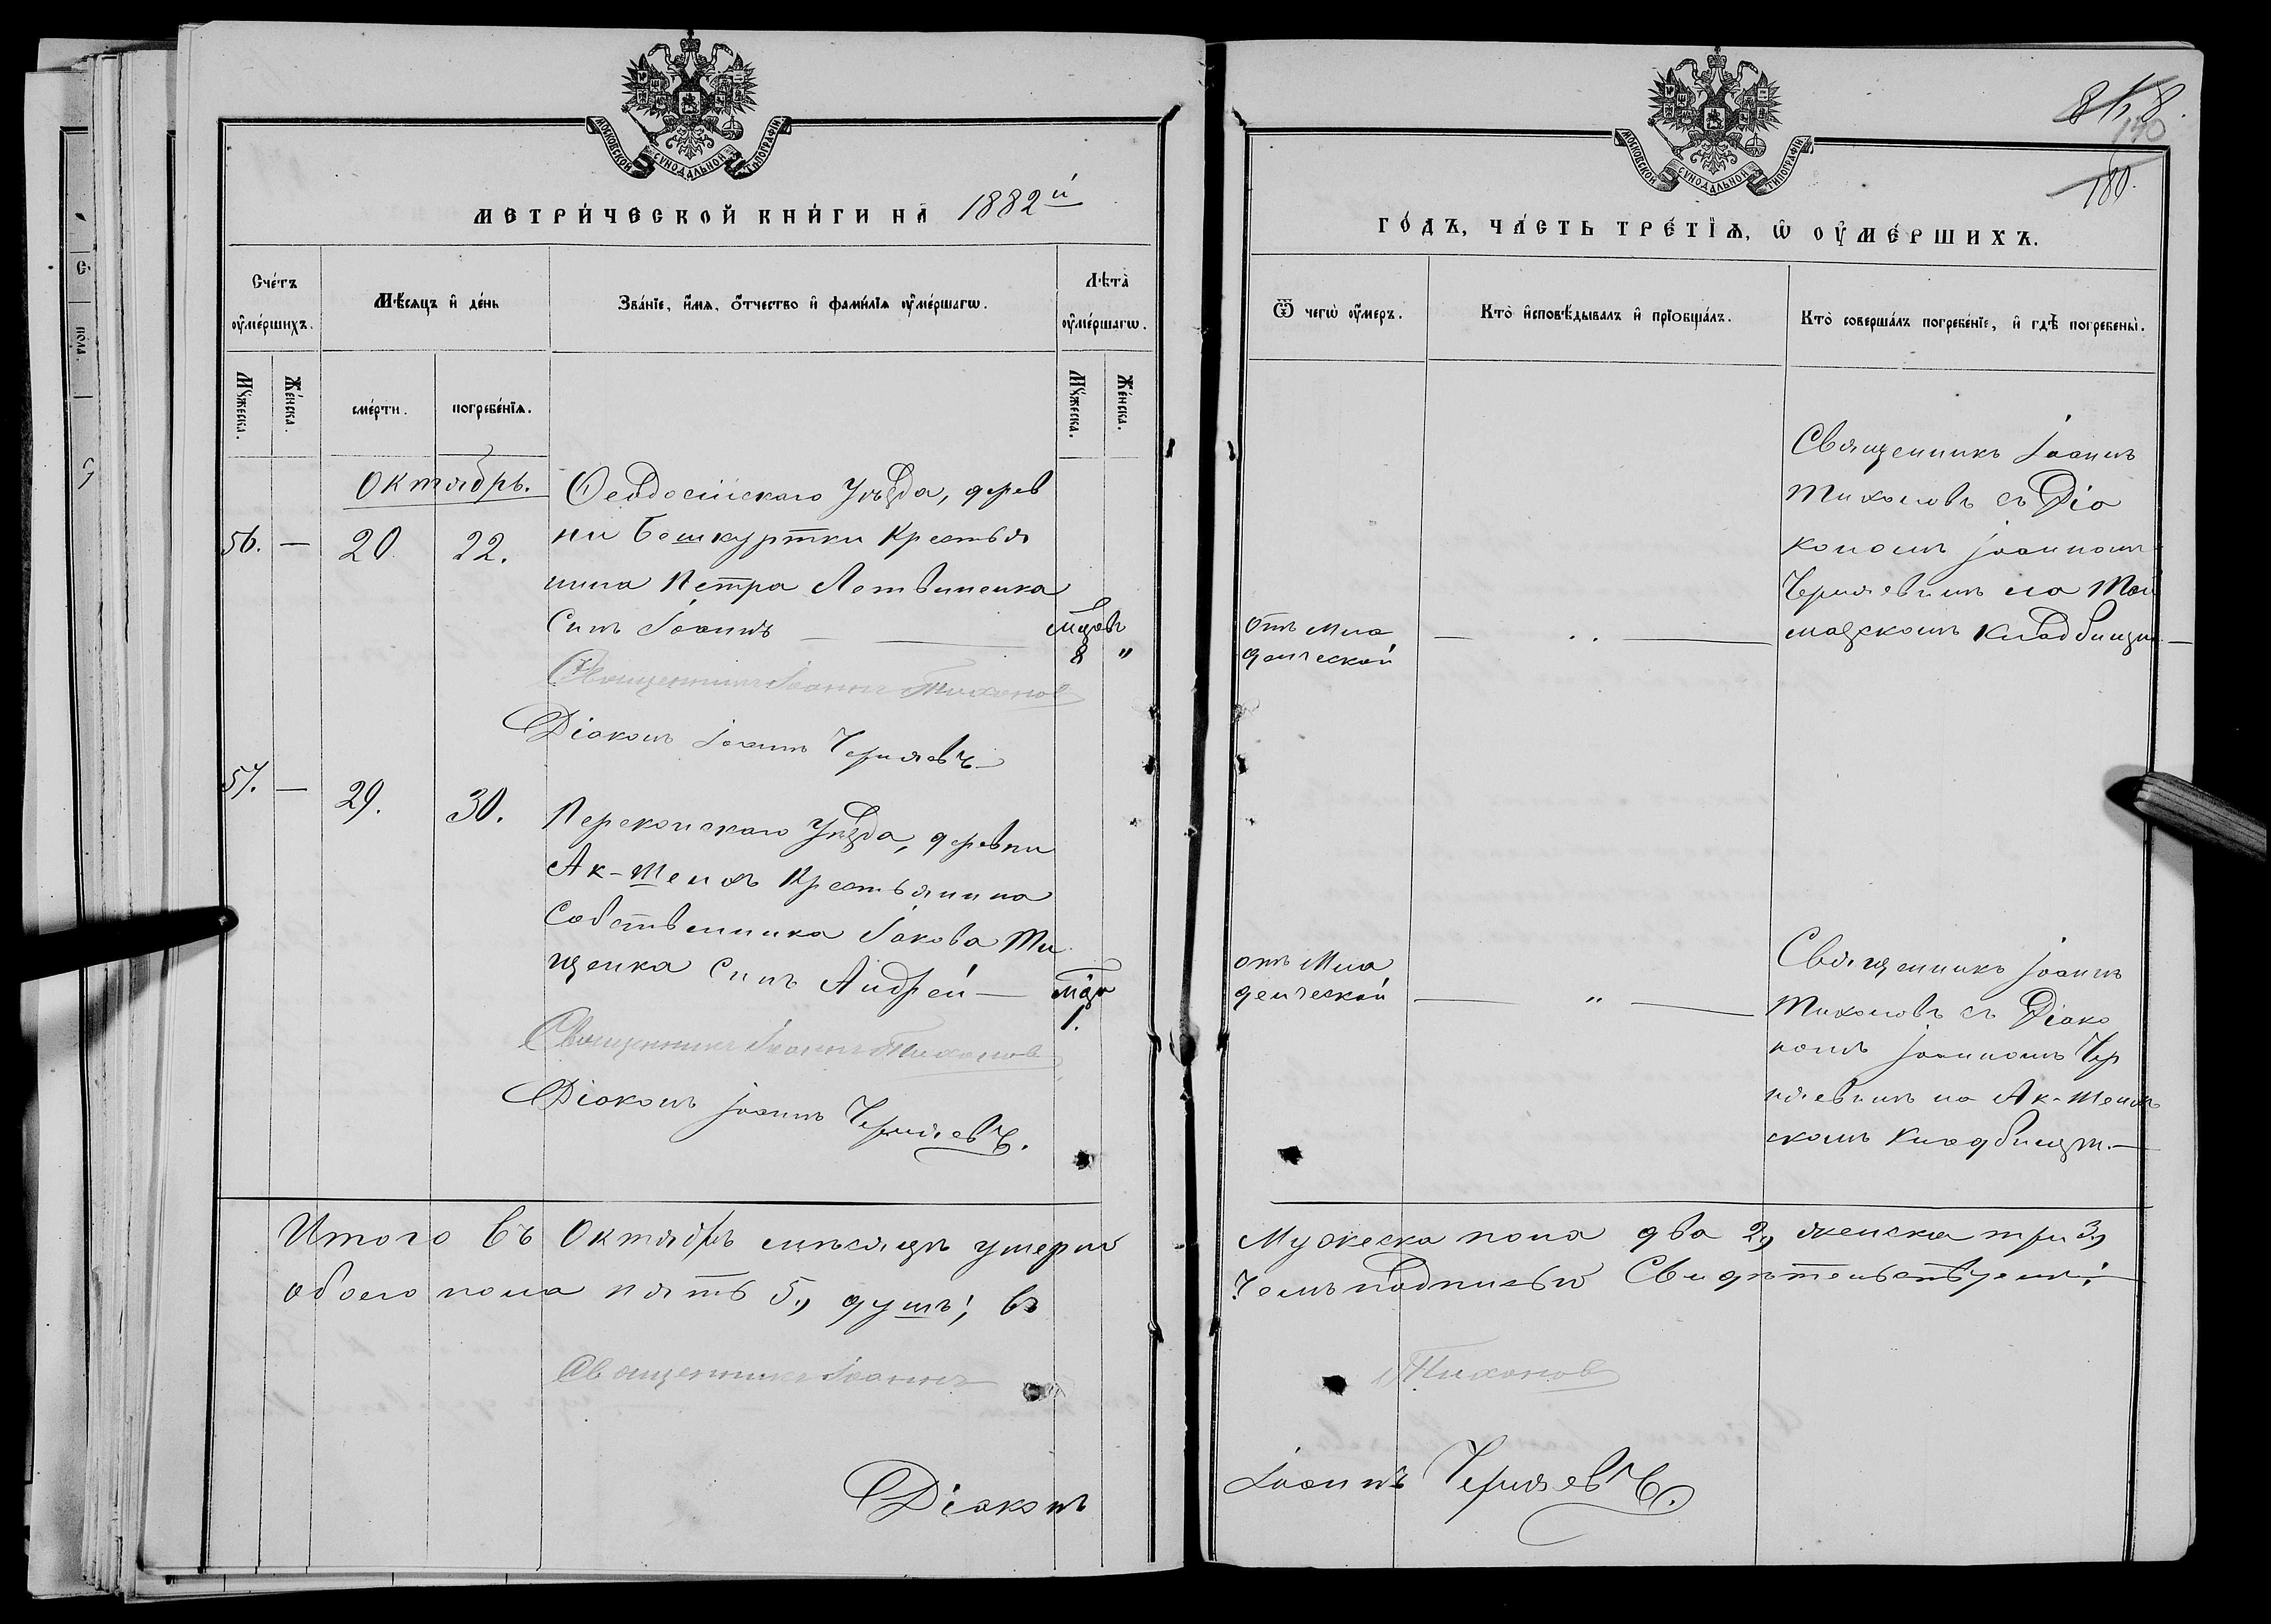 МОСКОВСКОЙ СУНОДАЛЬНОЙ ТИПОГРАФІИ
МЕТРИ́ЧЕСКОЙ КНИ́ГИ НА 1882й
Сче́тъ ᲂу҆ме́ршихъ.
Мѣ́сяцъ и҆ де́нь
Зва́нїе, и҆́мя, ѻ҆́тчество и҆ фами́лїя ᲂу҆ме́ршагѡ.
Лѣта̀ ᲂу҆ме́ршагѡ.
Мꙋ́жеска.
Же́нска.
сме́рти.
погребе́нїѧ.
Мꙋ́жеска.
Же́нска.
Октябрь.
56. — 20 22.
Ѳеодосійскаго Уѣзда, дерев
ни Бешкуртки Крестья
нина Петра Летвиненка
Сынъ Іоаннъ —
мцовъ
8 "
Священникъ Іоаннъ Тихонов
Діаконъ Іоаннъ Черняевъ
57. — 29. 30.
Перекопскаго Уѣзда, деревни
Ак-Шеихъ Крестьянина
Собственника Іакова Ти
щенка Сынъ Андрей —
1.
Священникъ Іоаннъ Тихонов
Діаконъ Іоаннъ Черняевъ.
Итого въ Октябрѣ мѣсяцѣ умерло
обоего пола пять 5, душъ; въ
Священникъ Іоаннъ
Діаконъ
МОСКОВСКОЙ СУНОДАЛЬНОЙ ТИПОГРАФІИ
180.
ГО́ДЪ, ЧА́СТЬ ТРЕ́ТЇѦ, Ѡ҆ ОУ҆МЕ́РШИХЪ.
Ѿ чегѡ̀ ᲂу҆́меръ.
Кто̀ и҆сповѣ́дывалъ и҆ прїобща́лъ.
Кто̀ соверша́лъ погребе́нїе, и҆ гдѣ̀ погребены̀.
отъ Мла
денческой
— " —
Священникъ Іоаннъ
Тихоновъ съ Діа
кономъ Іоанномъ
Черняевымъ на
Кладбищѣ —
отъ Мла
денческой
— " —
Священникъ Іоаннъ
Тихоновъ съ Діако
номъ Іоанномъ Чер
няевымъ на Ак-Шеихъ
скомъ Кладбищѣ. —
Мужеска пола два 2, женска три 3,
Чемъ подписью Свидѣтельствуемъ:
Тихонов
Іоаннъ Черняевъ.